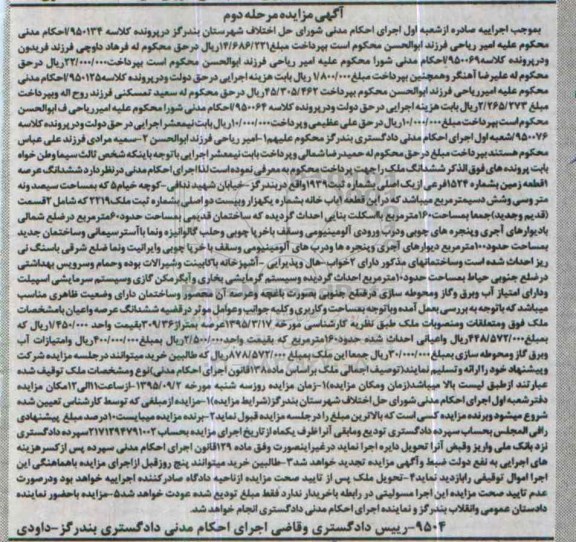 آگهی مزایده مرحله دوم
بموجب اجراییه صادره ازشعبه اول اجرای احکام مدنی شورای حل اختلاف شهرستان بندرگز درپرونده کلاسه ۹۵۰۱۳۴/احکام مدنی
محکوم علیه امیر ریاحی فرزند ابوالحسن محکوم است بپرداخت مبلغ۱۴/۶۸۶/۲۲۱ریال درحق محکوم له فرهاد داوچی فرزند فریدون
ودرپرونده کلاسه ۹۵۰۰۶۹/احکام مدنی شورا محکوم علیه امیر ریاحی فرزند ابوالحسن محکوم است بپرداخت۲۲/۰۰۰/۰۰۰ریال درحق
محکوم له علیرضا آهنگر وهمچنین بپرداخت مبلغ۱/۸۰۰/۰۰۰ ریال بابت هزینه اجرایی در حق دولت ودرپرونده کلاسه۹۵۰۱۲۵/احکام مدنی
محکوم علیه امیرریاحی فرزند ابوالحسن محکوم بپرداخت ۴۵/۳۰۵/۴۶۲ریال درحق محکوم له سعید تمسکنی فرزند روح اله وبپرداخت
مبلغ ۲/۲۶۵/۲۷۳ریال بابت هزینه اجرایی درحق دولت ودرپرونده کلاسه ۹۵۰۰۶۴/احکام مدنی شورا محکوم علیه امیرریاحی ف ابوالحسن
محکوم است بپرداخت مبلغ۱۰/۰۰۰/۰۰۰ریال در حق علی عظیمی وپرداخت۱۰/۰۰۰/۰۰۰ریال بابت نیمعشر اجرایی در حق دولت ودرپرونده کلاسه
۹۵۰۰۷۶/شعبه اول اجرای احکام مدنی دادگستری بندرگز محکوم علیهم۱-امیر ریاحی فرزند ابوالحسن ۲-سمیه مرادی فرزند علی عباس
محکوم هستند بپرداخت مبلغ درحق محکوم له حمیدرضا شمالی وپرداخت بابت نیمعشر اجرایی باتوجه باینکه شخص ثالث سیما وطن خواه
بابت پرونده های فوق الذکر ششدانگ ملک راجهت پرداخت محکوم به معرفی نموده است لذا اجرای احکام مدنی درنظردارد ششدانگ عرصه
۱قطعه زمین بشماره ۱۵۲۴ فرعی ازیک اصلی شماره ثبت۱۹۳۹واقع دربندرگز-خیابان شهید ندافی-کوچه خیام۵ که بمساحت سیصد ونه
متر وسی وشش دسیمترمربع میباشد که در این قطعه ۱باب خانه بشماره یکهزار وبیست دو اصلی بشماره ثبت ملک۲۲۱۹ که شامل ۲قسمت
(قدیم وجدید)جمعا بمساحت۱۶۰مترمربع بااسکلت بنایی احداث گردیده که ساختمان قدیمی بمساحت حدود۶۰مترمربع در ضلع شمالی
بادیوارهای آجری وپنجره های چوبی ودرب ورودی آلومینیومی وسقف باخرپا چوبی وحلب گالوانیزه ونما باآسترسیمانی وساختمان جدید
بمساحت حدود۱۰۰مترمربع دیوارهای آجری وپنجره ها ودرب های آلومینیومی وسقف باخرپا چوبی وایرانیت ونما ضلع شرقی باسنگ نی
ریز احداث شده است وساختمانهای مذکور دارای ۲خواب-هال وپذیرایی –آشپزخانه باکابینت وشیرالات بوده وحمام وسرویس بهداشتی
درضلع جنوبی حیاط بمساحت حدود۱۰مترمربع احداث گردیده وسیستم گرمایشی بخاری وآبگرمکن گازی وسیستم سرمایشی اسپیلت
ودارای امتیاز آب وبرق وگاز ومحوطه سازی درضلع جنوبی بصورت باغچه وعرصه آن محصور وساختمان دارای وضعیت ظاهری مناسب
میباشد که باتوجه به بررسی بعمل آمده وباتوجه بمساحت وکاربری وکلیه جوانب وعوامل موثر در قضیه ششدانگ عرصه واعیان بامشخصات
ملک فوق ومتعلقات ومنصوبات ملک طبق نظریه کارشناسی مورخه ۱۳۹۵/۳/۱۷عرصه بمتراژ۳۰۹/۳۶بقیمت واحد ۱/۴۵۰/۰۰۰ریال که
بمبلغ۴۴۸/۵۷۲/۰۰۰ریال واعیانی احداث شده حدود۱۶۰مترمربع که بقیمت واحد۲/۵۰۰/۰۰۰ریال بمبلغ۴۰۰/۰۰۰/۰۰۰ریال وامتیازات آب
وبرق گاز ومحوطه سازی بمبلغ۳۰/۰۰۰/۰۰۰ریال جمعا این ملک بمبلغ ۸۷۸/۵۷۲/۰۰۰ریال که طالبین خرید میتوانند درجلسه مزایده شرکت
وپیشنهاد خود را ارائه وتسلیم نمایند(توصیف اجمالی ملک براساس ماده۱۳۸قانون اجرای احکام مدنی)نوع ومشخصات ملک توقیف شده
عبارتند ازطبق لیست بالا میباشد(زمان ومکان مزایده)۱-زمان مزایده روزسه شنبه مورخه ۱۳۹۵/۰۹/۲-ازساعت۱۱الی۱۲مکان مزایده
دفترشعبه اول اجرای احکام مدنی شورای حل اختلاف شهرستان بندرگز(شرایط مزایده)۱-مزایده ازمبلغی که توسط کارشناس تعیین شده
شروع میشود وبرنده مزایده کسی است که بالاترین مبلغ را درجلسه مزایده قبول نماید۲-برنده مزایده میبایست۱۰درصد مبلغ پیشنهادی
رافی المجلس بحساب سپرده دادگستری تودیع ومابقی آنرا ظرف یکماه از تاریخ اجرای مزایده بحساب۲۱۷۱۲۹۴۷۹۱۰۰۲سپرده دادگستری
نزد بانک ملی واریز وقبض آنرا تحویل دایره اجرا نماید در غیراینصورت وفق ماده ۱۲۹قانون اجرای احکام مدنی سپرده پس ازکسرهزینه
های اجرایی به نفع دولت ضبط وآگهی مزایده تجدید خواهد شد۳-طالبین خرید میتوانند پنج روزقبل ازاجرای مزایده باهماهنگی این
اجرا اموال توقیفی رابازدید نماید۴-تحویل ملک پس از تایید صحت مزایده ازناحیه دادگاه صادرکننده اجراییه خواهد بود ودرصورت
عدم تایید صحت مزایده این اجرا مسولیتی در رابطه باخریدار ندارد فقط مبلغ تودیع شده عودت خواهد شد۵-مزایده باحضور نماینده
دادستان عمومی وانقلاب بندرگز و نماینده اجرای احکام مدنی دادگستری انجام خواهد شد.
۹۵۰۴-رییس دادگستری وقاضی اجرای احکام مدنی دادگستری بندرگز-داودی